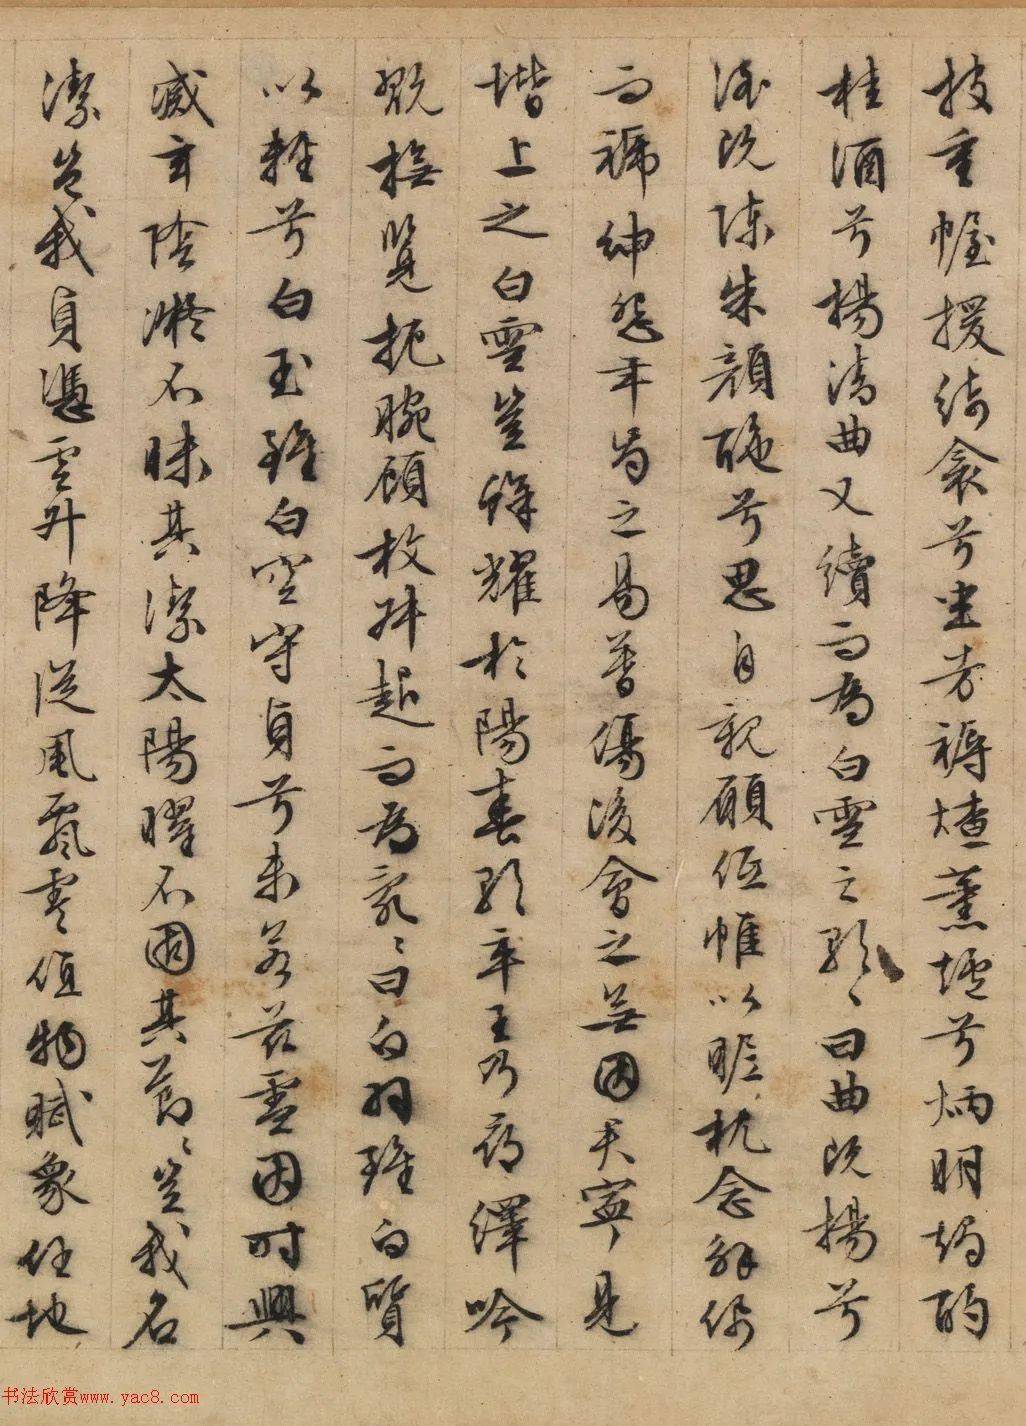 披重幄援綺衾兮坐芳褥燎薰爐兮炳明燭酌
桂酒兮揚清曲又續而為白雪之歌々曰曲既揚兮
酒既陳朱顏酡兮思自親願低帷以昵枕念解佩
而褫紳怨年歲之易暮傷後會之無因君寧見
階上之白雪豈鮮耀於陽春歌卒王乃尋繹吟
翫撫覽扼腕顧枚叔起而為亂々曰白羽雖白質
以輕兮白玉雖白空守貞兮未若茲雪因時興
滅玄陰凝不昧其潔太陽曜不固其節々豈我名
潔豈我貞憑雲升降從風飄零值物賦象任地
书法欣赏www.yac8.com